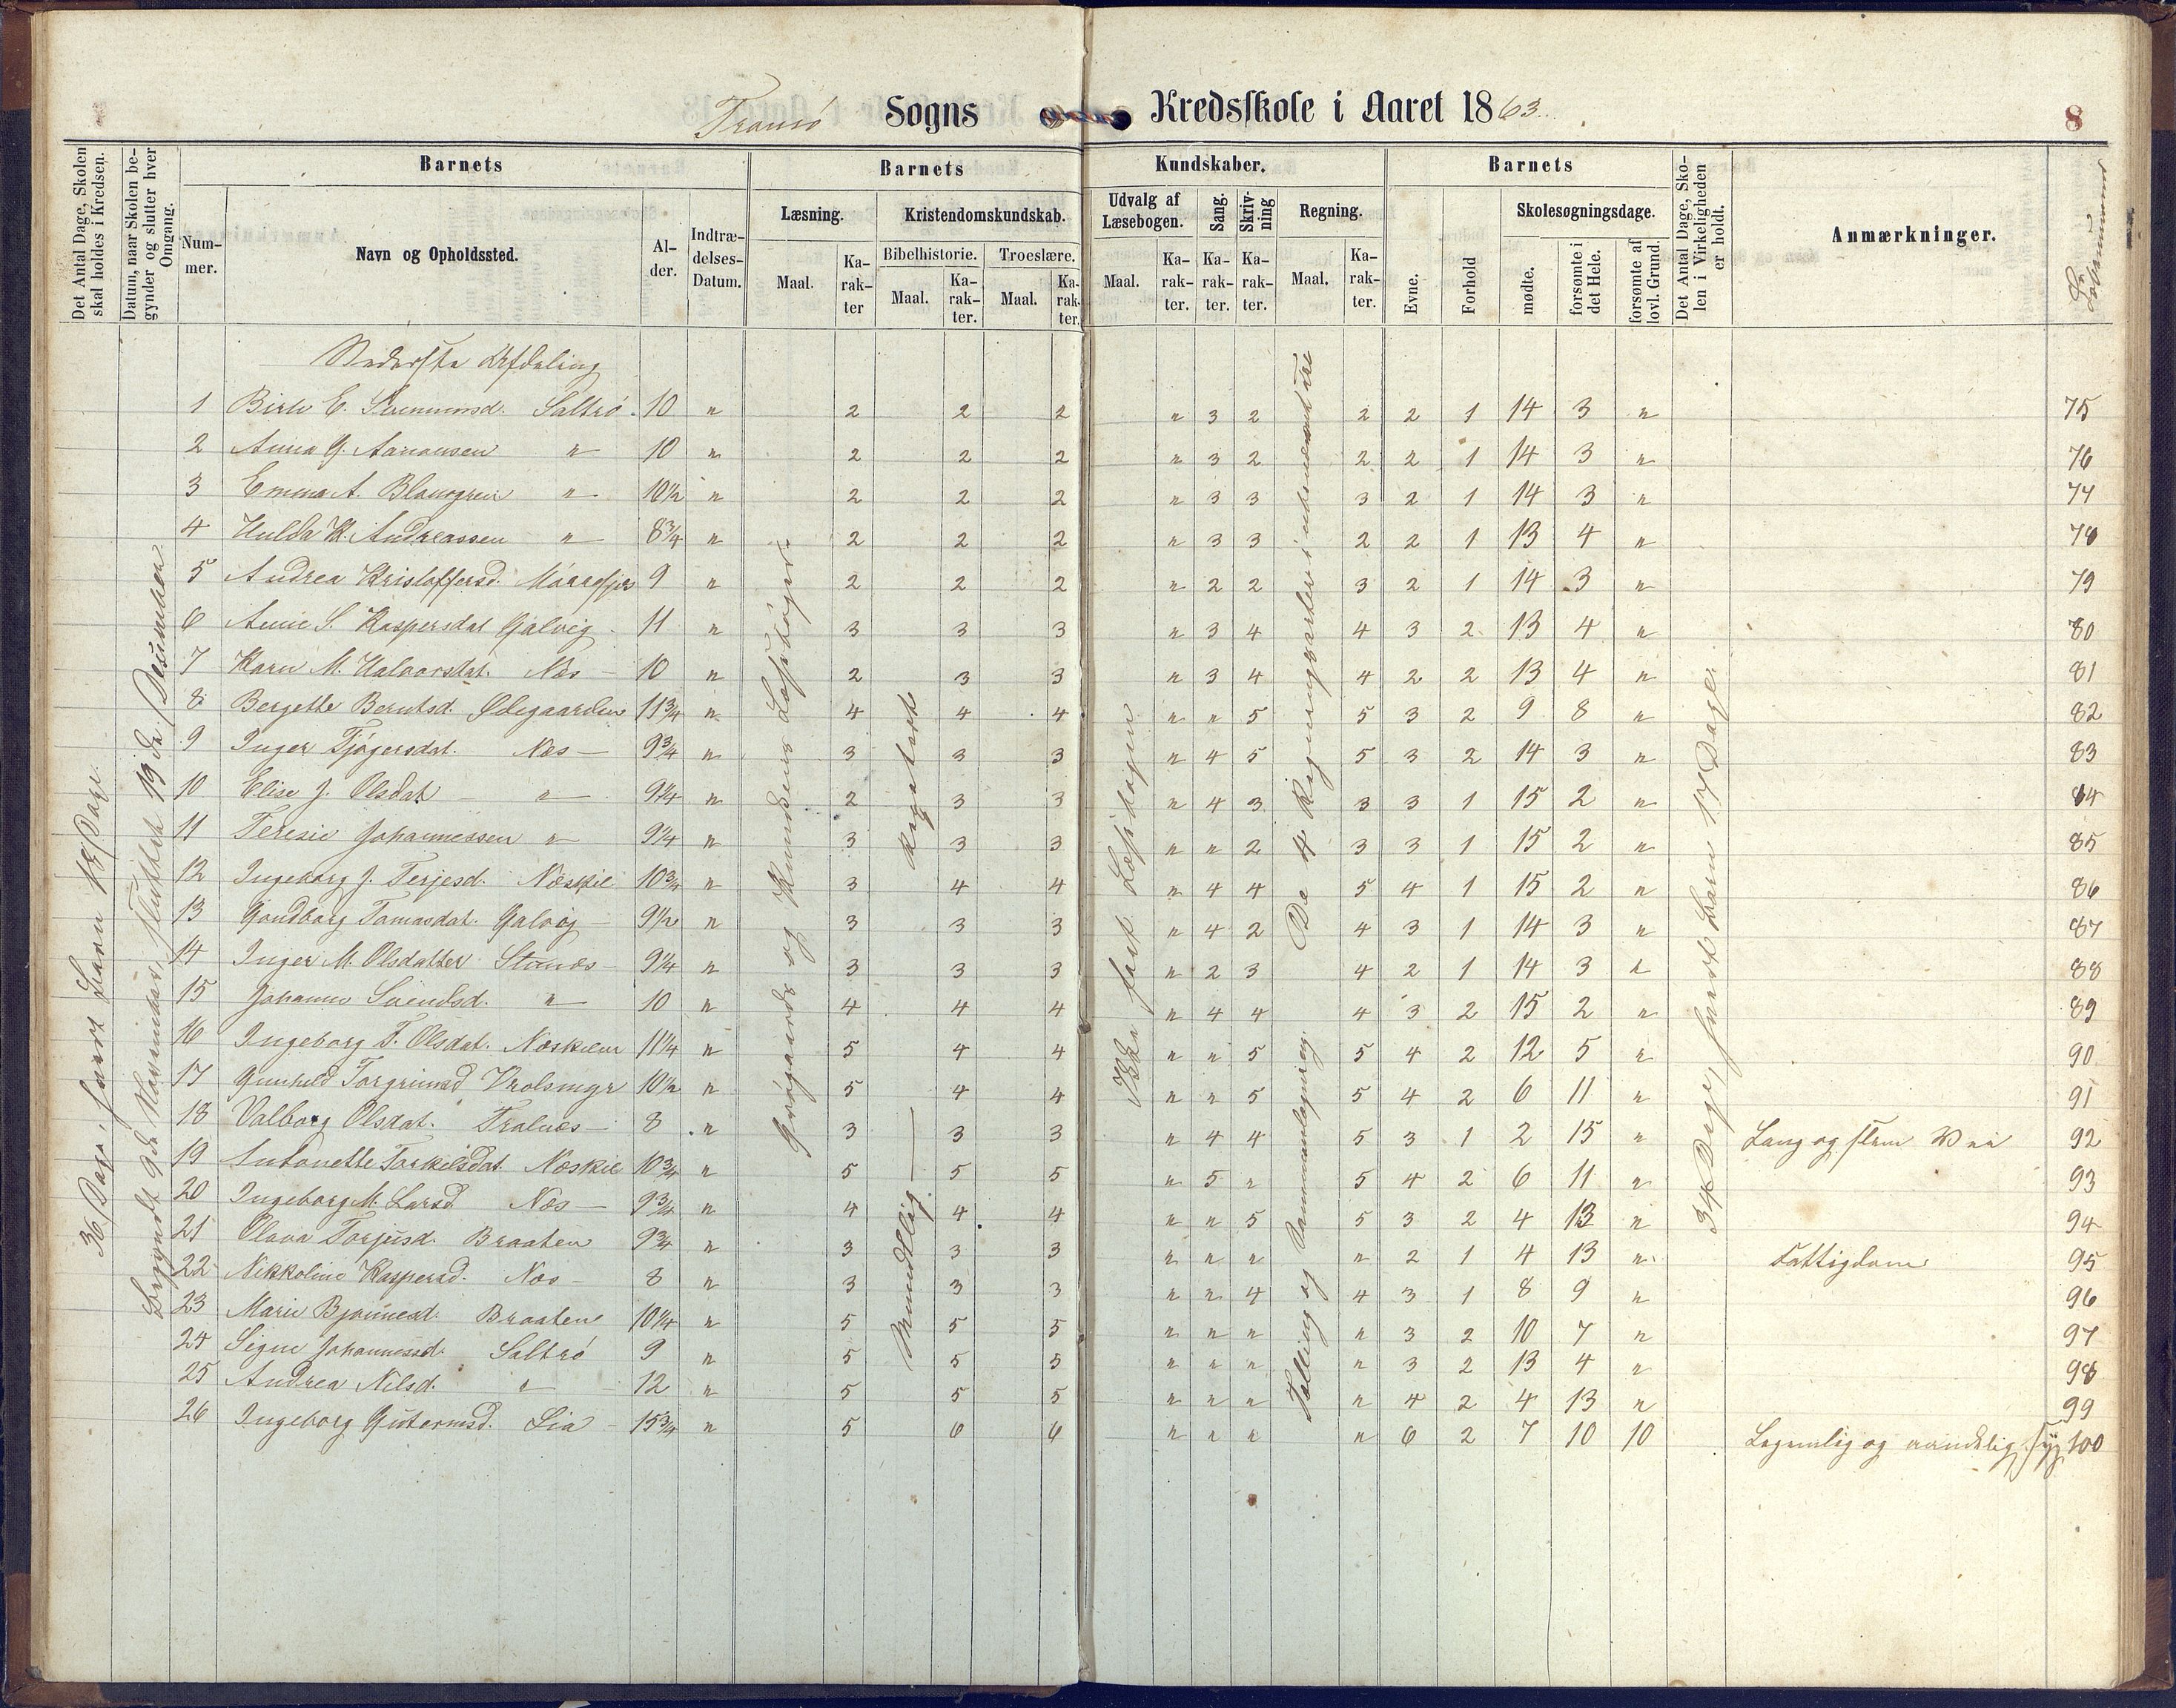 Tromö Sogns Kredsskole i Aaret 1863.
8
Det Antal Dage, Skolen skal holdes i Kredsen.
Datum, naar Skolen begynder og slutter hver Omgang.
Barnets
Nummer.
Navn og Opholdssted.
Alder.
Indtrædelses-Datum.
Barnets
Kundskaber.
Læsning.
Maal.
Karakter
Kristendomskundskab.
Bibelhistorie.
Maal.
Karakter.
Troeslære.
Maal.
Karakter.
Udvalg af Læsebogen.
Maal.
Karakter.
Sang.
Karakter.
Skrivning
Karakter.
Regning.
Maal.
Karakter.
Barnets
Evne.
Forhold
Skolesøgningsdage.
mødte.
forsømte i det Hele.
forsømte af lovl. Grund.
Det Antal Dage, Skolen i Virkeligheden er holdt.
Anmærkninger.
Løbenummer
Nederste Afdeling
36 Dage, hvert Barn 18 Dage.
Begyndt 9de November, sluttet 19de December
Grøgaards og Knudsens Læsebøger
Mundtlig
Ikke havt Læsebogen
Tælling og Sammenlægning. De 4 Regningsarter i ubenævnte Tal
34 Dage, hvert Barn 17 Dage.
1 Birte E. Svennumsd. Saltrö 10 " 2 2 2 " 3 2 2 2 1 14 3 " 75
2 Anna G. Aanonsen " 10 " 2 2 2 " 3 2 2 2 1 14 3 " 76
3 Emma A. Blomgren " 10½ " 2 2 2 " 3 3 3 2 1 14 3 " 77
4 Hulda K. Andreassen " 8¾ " 2 2 2 " 3 3 2 2 1 13 4 " 78
5 Andrea Kristoffersd. 9 " 2 2 2 " 2 2 3 2 1 14 3 " 79
6 Anne S. Kaspersdat Gjalvig 11 " 3 3 3 " 3 4 4 3 2 13 4 " 80
7 Karen M. Halvorsdat. Næs 10 " 2 3 3 " 3 4 4 2 2 13 4 " 81
8 Bergette Berntsd. Ødegaarden 11¾ " 4 4 4 " " 5 5 3 2 9 8 " 82
9 Inger Tjøgersdat. Næs 9¾ " 3 3 3 " 4 5 5 3 2 14 3 " 83
10 Elise J. Olsdat " 9¼ " 2 3 3 " 4 3 3 3 1 15 2 " 84
11 Teresie Johannessen " 9¼ " 3 3 3 " " 2 3 3 1 15 2 " 85
12 Ingeborg J. Terjesd. Næskil 10¾ " 3 4 4 " 4 4 5 4 1 15 2 " 86
13 Gondborg Tomasdat. Gjalvig 9½ " 3 3 3 " 4 2 4 3 1 14 3 " 87
14 Inger M. Olsdatter Stunes 9¼ " 3 3 3 " 2 3 4 2 1 14 3 " 88
15 Johanne Svendsd. " 10 " 4 4 4 " 4 4 4 3 2 15 2 " 89
16 Ingeborg T. Olsdat. Næskilen 11¼ " 5 4 4 " " 5 5 4 2 12 5 " 90
17 Gunhild Torgrimsd Vrolsmyr 10½ " 5 4 4 " " 5 5 4 2 6 11 " 91
18 Valborg Olsdat. Tralnæs 8 " 3 3 3 " 4 4 5 3 1 2 15 " Lang og slem Vei 92
19 Antonette Torkelsdat. Næskil 10¾ " 5 5 5 " 5 " 5 4 2 6 11 " 93
20 Ingeborg M. Larsd Næs 9¾ " 4 4 4 " " 5 5 3 2 4 13 " 94
21 Olava Torjusd. Braaten 9¾ " 3 3 3 " " " " 2 1 4 13 " Fattigdom 95
22 Nikkoline Kaspersd. Næs 8 " 3 3 3 " " 4 4 3 1 8 9 " 96
23 Marie Bjønnesd. Braaten 10¼ " 5 5 5 " " " " 3 2 10 7 " 97
24 Signe Johannessd. Saltrö 9 " 5 5 5 " " " " 3 2 13 4 " 98
25 Andrea Nilsd. " 12 " 5 5 5 " " " " 4 2 4 13 " 99
26 Ingeborg Gutormsd. Lia 15¾ " 5 6 6 " " " " 6 2 7 10 10 Legemlig og aandelig syg 100